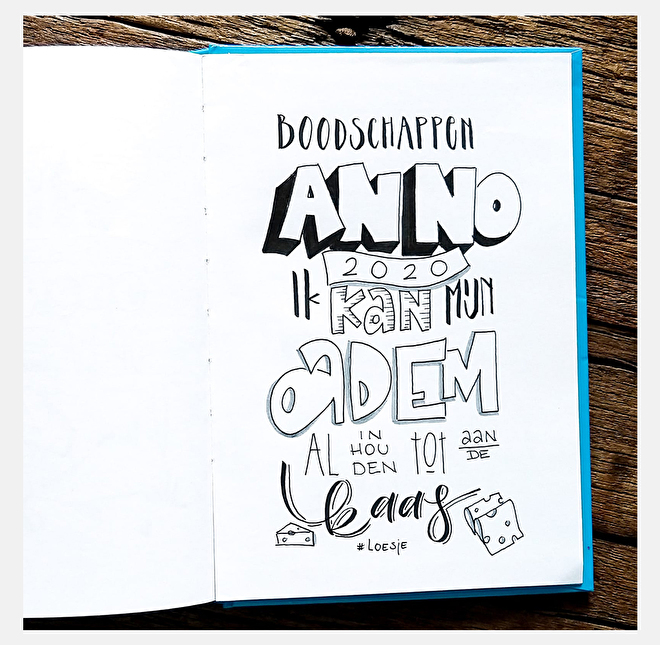 BOODSCHAPPEN
ANNO
2020
Ik KAN MIJN
ADEM
AL IN HOU DEN TOT AAN DE
kaas
#LOESJE